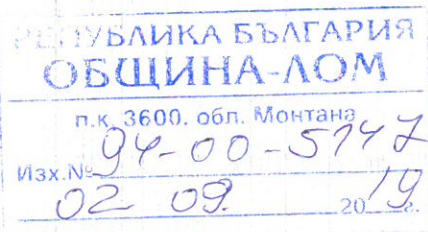 РЕПУБЛИКА БЪЛГАРИЯ
ОБЩИНА-ЛОМ
п.к. 3600. обл. Монтана
Изх.№ 94-00-5747
02 09. 2019 г.